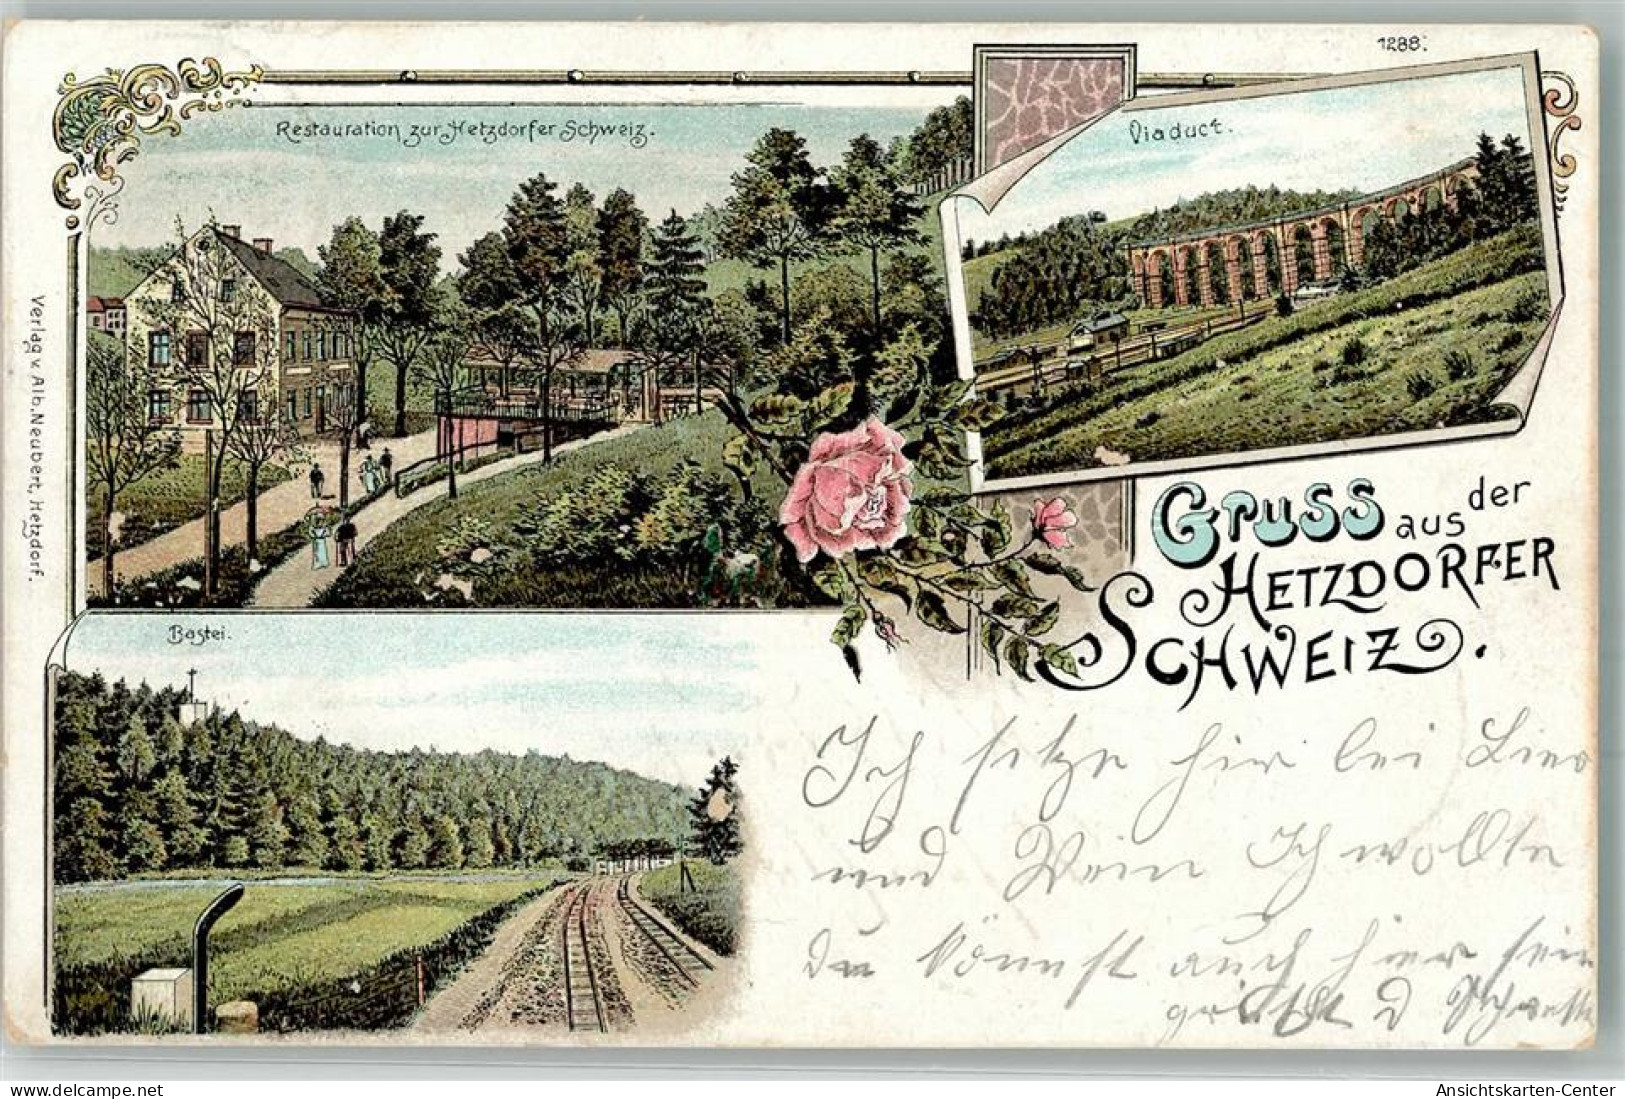 1288.
Restauration zur Hetzdorfer Schweiz.
Viaduct.
Verlag v. Alb. Neubert, Hetzdorf.
Gruss aus der
HETZDORFER
SCHWEIZ.
Bastei.
Ich sitze hir bei Bier
und Wein Ich wollte
du könnst auch hier sein
grüßt D
www.oldthing.de
Ansichtskarten-Center